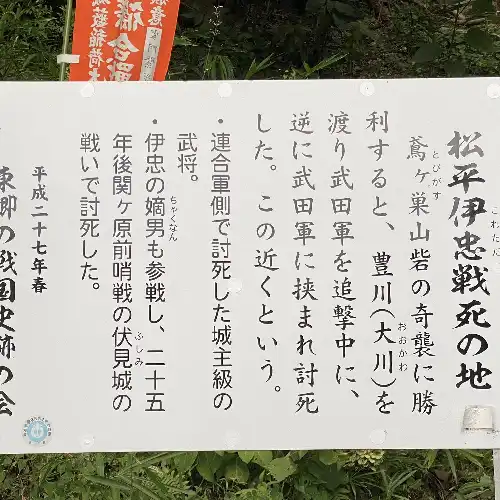 松平伊忠戦死の地
これただ
鳶ヶ巣山砦の奇襲に勝
とびがす
利すると、豊川(大川)を
おおかわ
渡り武田軍を追撃中に、
逆に武田軍に挟まれ討死
した。この近くという。
・連合軍側で討死した城主級の
武将。
・伊忠の嫡男も参戦し、二十五
ちゃくなん
年後関ヶ原前哨戦の伏見城の
ふしみ
戦いで討死した。
平成二十七年春
東郷の戦国史跡の会